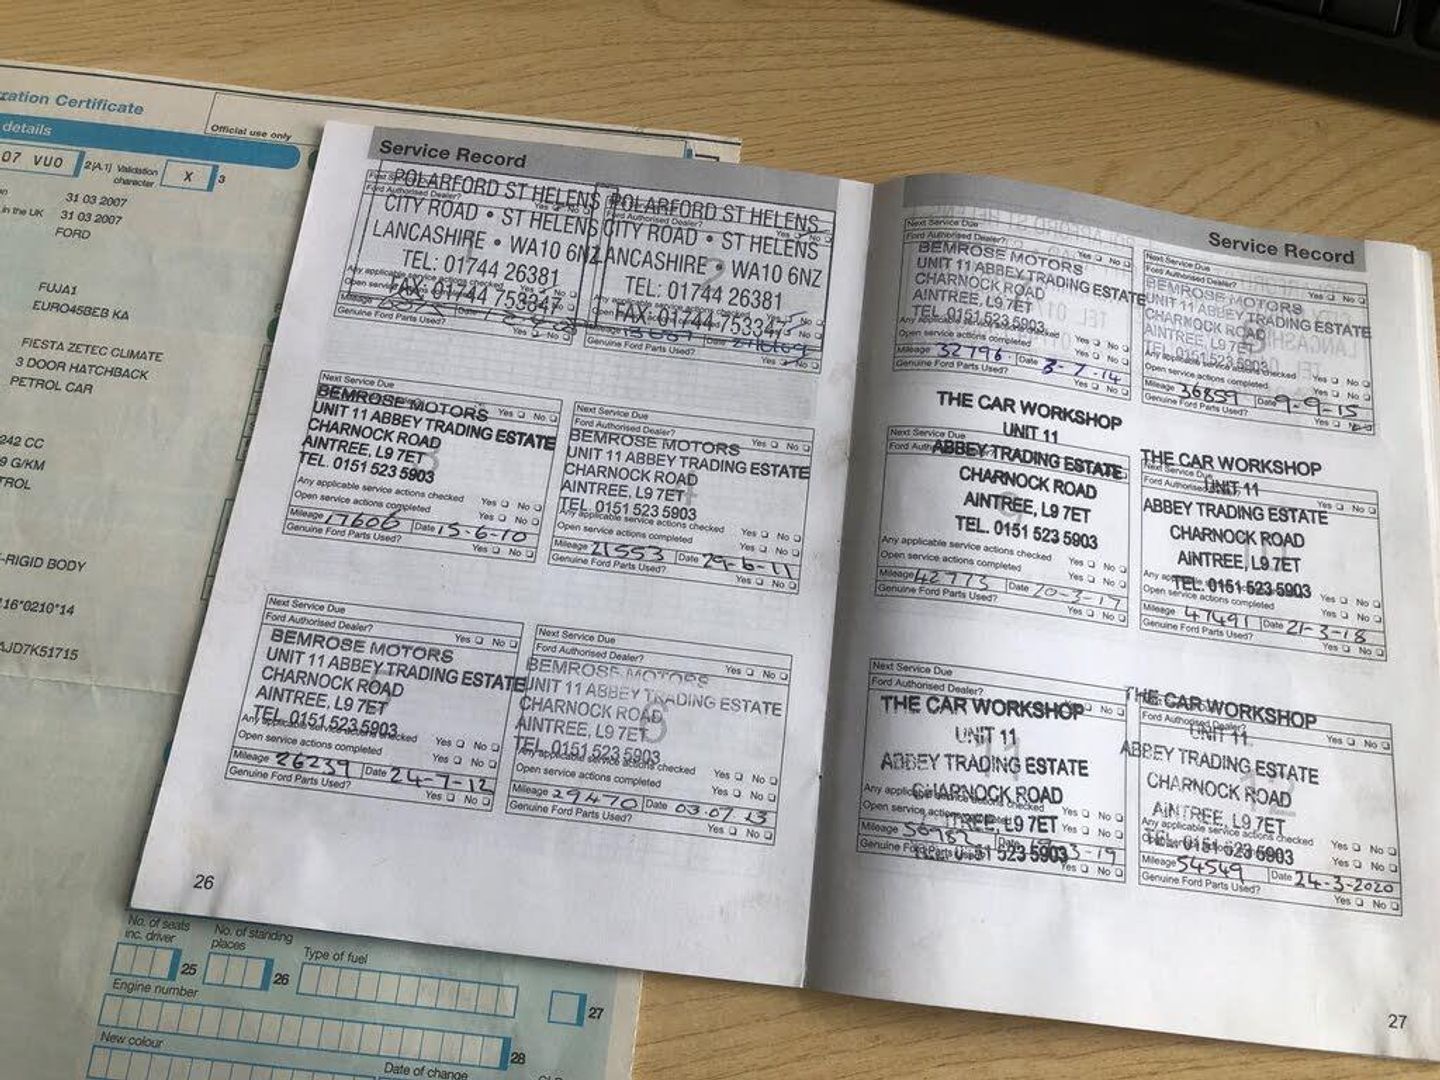 ration Certificate
Official use only
details
07 VUO
2(A.1) Validation
character
X
3
31 03 2007
in the UK 31 03 2007
FORD
FUJA1
EURO45BEB KA
FIESTA ZETEC CLIMATE
3 DOOR HATCHBACK
PETROL CAR
242 CC
9 G/KM
TROL
-RIGID BODY
116*0210*14
AJD7K51715
No. of seats
inc. driver
25
No. of standing
places
26
Type of fuel
27
Engine number
28
New colour
Date of change
Service Record
Ford Authorised Dealer?
POLARFORD ST HELENS
CITY ROAD • ST HELENS
LANCASHIRE • WA10 6NZ
TEL: 01744 26381
FAX: 01744 753347
Mileage Date
Genuine Ford Parts Used? Yes No
POLARFORD ST HELENS
CITY ROAD • ST HELENS
LANCASHIRE • WA10 6NZ
TEL: 01744 26381
FAX: 01744 753347
Mileage Date
Genuine Ford Parts Used? Yes No
Next Service Due
BEMROSE MOTORS Yes No
UNIT 11 ABBEY TRADING ESTATE
CHARNOCK ROAD
AINTREE, L9 7ET
TEL. 0151 523 5903
Any applicable service actions checked Yes No
Open service actions completed Yes No
Mileage 17606 Date 15-6-10
Genuine Ford Parts Used? Yes No
Next Service Due
Ford Authorised Dealer? Yes No
BEMROSE MOTORS
UNIT 11 ABBEY TRADING ESTATE
CHARNOCK ROAD
AINTREE, L9 7ET
TEL. 0151 523 5903
Any applicable service actions checked Yes No
Open service actions completed Yes No
Mileage 21553 Date 29-6-11
Genuine Ford Parts Used? Yes No
Next Service Due
Ford Authorised Dealer? Yes No
BEMROSE MOTORS
UNIT 11 ABBEY TRADING ESTATE
CHARNOCK ROAD
AINTREE, L9 7ET
TEL. 0151 523 5903
Any applicable service actions checked Yes No
Open service actions completed Yes No
Mileage 26239 Date 24-7-12
Genuine Ford Parts Used? Yes No
Next Service Due
Ford Authorised Dealer? Yes No
BEMROSE MOTORS
UNIT 11 ABBEY TRADING ESTATE
CHARNOCK ROAD
AINTREE, L9 7ET
TEL. 0151 523 5903
Any applicable service actions checked Yes No
Open service actions completed Yes No
Mileage 29470 Date 03.07.13
Genuine Ford Parts Used? Yes No
26
Service Record
Next Service Due
Ford Authorised Dealer? Yes No
BEMROSE MOTORS
UNIT 11 ABBEY TRADING ESTATE
CHARNOCK ROAD
AINTREE, L9 7ET
TEL. 0151 523 5903
Any applicable service actions checked Yes No
Open service actions completed Yes No
Mileage 32796 Date 3-7-14
Genuine Ford Parts Used? Yes No
Next Service Due
Ford Authorised Dealer? Yes No
BEMROSE MOTORS
UNIT 11 ABBEY TRADING ESTATE
CHARNOCK ROAD
AINTREE, L9 7ET
TEL. 0151 523 5903
Any applicable service actions checked Yes No
Open service actions completed Yes No
Mileage 36859 Date 9-9-15
Genuine Ford Parts Used? Yes No
THE CAR WORKSHOP
UNIT 11
Next Service Due
ABBEY TRADING ESTATE
CHARNOCK ROAD
AINTREE, L9 7ET
TEL. 0151 523 5903
Any applicable service actions checked Yes No
Open service actions completed Yes No
Mileage 42773 Date 20-3-17
Genuine Ford Parts Used? Yes No
THE CAR WORKSHOP
Next Service Due
UNIT 11
ABBEY TRADING ESTATE
CHARNOCK ROAD
AINTREE, L9 7ET
TEL. 0151 523 5903
Open service actions completed Yes No
Mileage 47491 Date 21-3-18
Genuine Ford Parts Used? Yes No
Next Service Due
Ford Authorised Dealer?
THE CAR WORKSHOP No
UNIT 11
ABBEY TRADING ESTATE
CHARNOCK ROAD
Yes No
TREE, L9 7ET Yes No
Mileage 50982 3-19
Genuine Ford Parts Used? 523 5903 Yes No
THE CAR WORKSHOP
Ford Authorised Dealer?
UNIT 11 Yes No
ABBEY TRADING ESTATE
CHARNOCK ROAD
AINTREE, L9 7ET
Any applicable service actions checked Yes No
TEL. 0151 523 5903 Yes No
Mileage 54549 Date 24-3-2020
Genuine Ford Parts Used? Yes No
27